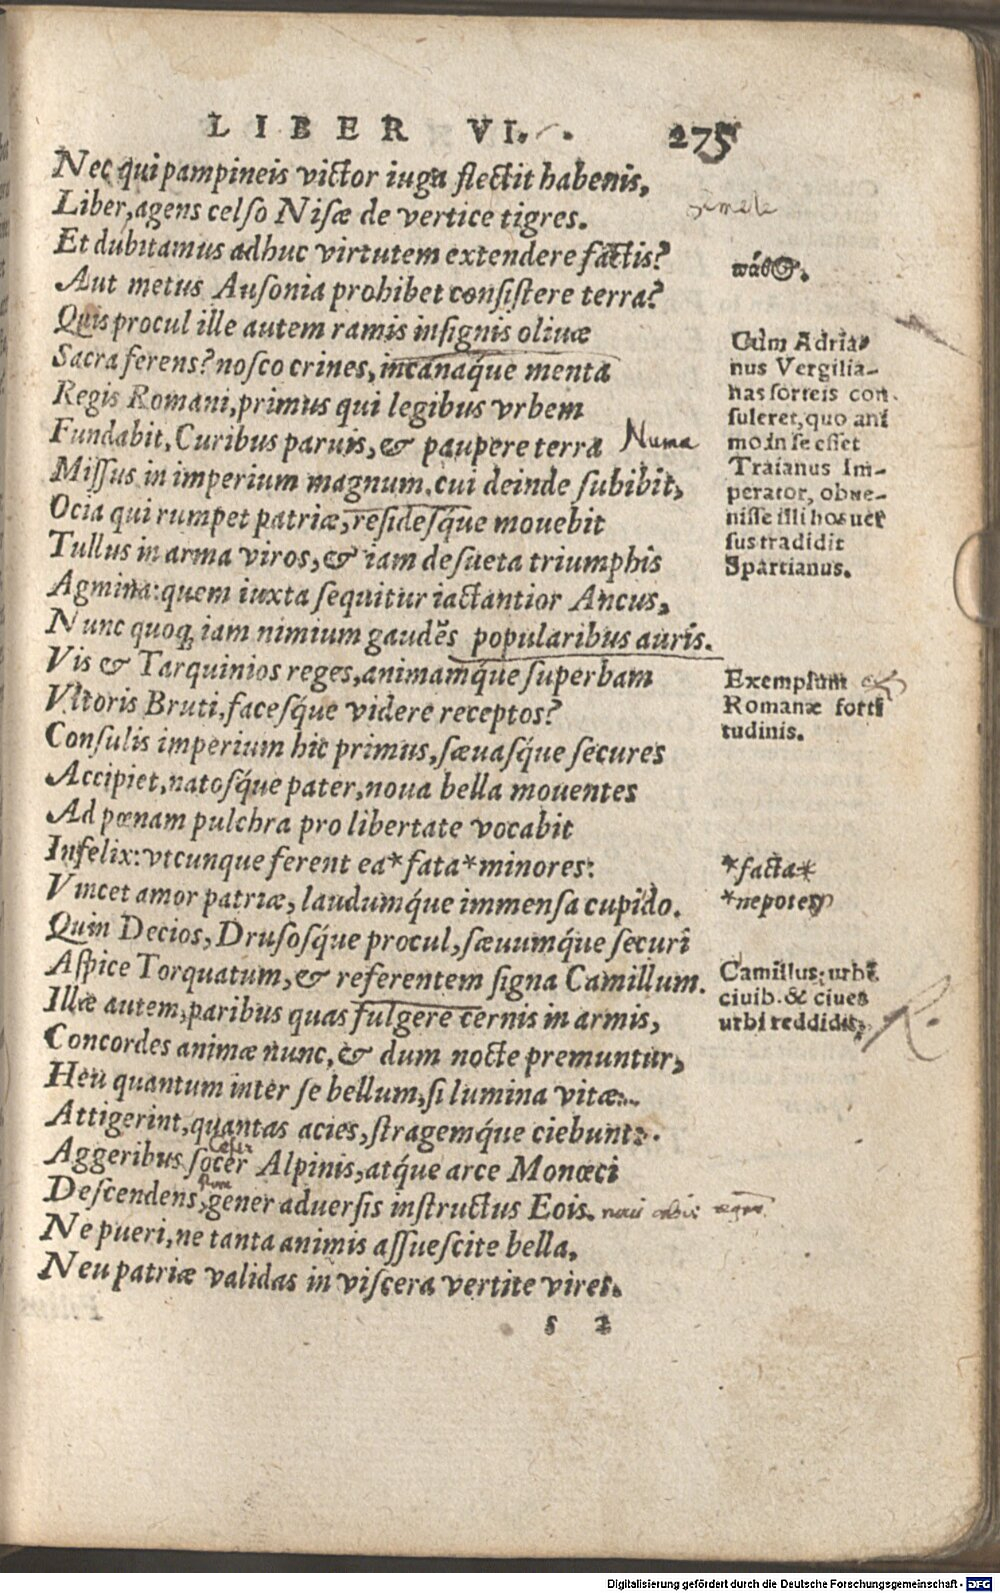 LIBER VI. 275
Nec qui pampineis victor iuga flectit habenis,
Liber, agens celso Nisæ de vertice tigres.
Et dubitamus adhuc virtutem extendere factis?
Aut metus Ausonia prohibet consistere terra?
Quis procul ille autem ramis insignis oliuæ
Sacra ferens? nosco crines, incanaq́ue menta
Regis Romani, primus qui legibus vrbem
Fundabit, Curibus paruis, & paupere terra
Missus in imperium magnum. cui deinde subibit,
Ocia qui rumpet patriæ, residesq́ue mouebit
Tullus in arma viros, & iam desueta triumphis
Agmina: quem iuxta sequitur iactantior Ancus,
Nunc quoq; iam nimium gaudẽs popularibus auris.
Vis & Tarquinios reges, animamq́ue superbam
Vltoris Bruti, facesq́ue videre receptos?
Consulis imperium hic primus, sæuasq́ue secures
Accipiet, natosq́ue pater, noua bella mouentes
Ad pœnam pulchra pro libertate vocabit
Infelix: vtcunque ferent ea*fata*minores:
Vincet amor patriæ, laudumq́ue immensa cupido.
Quin Decios, Drusosq́ue procul, sæuumq́ue securi
Aspice Torquatum, & referentem signa Camillum.
Illæ autem, paribus quas fulgere cernis in armis,
Concordes animæ nunc, & dum nocte premuntur,
Heu quantum inter se bellum, si lumina vitæ
Attigerint, quantas acies, stragemq́ue ciebunt?
Aggeribus socer Alpinis, atq́ue arce Monœci
Descendens, gener aduersis instructus Eois.
Ne pueri, ne tanta animis assuescite bella,
Neu patriæ validas in viscera vertite vires.
s 2
πάθος.
Cùm Adria-
nus Vergilia-
nas sorteis con
suleret, quo ani
mo in se esset
Traianus Im-
perator, obue-
nisse illi hos uer
sus tradidit
Spartianus.
Numa
Exemplum
Romanæ forti
tudinis.
*facta*
*nepotes
Camillus: urbẽ
ciuib. & ciues
urbi reddidit.
R.
Digitalisierung gefördert durch die Deutsche Forschungsgemeinschaft - DFG